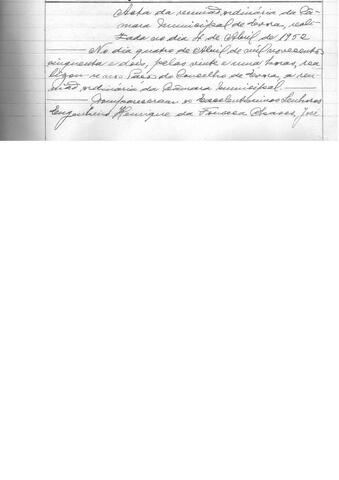 Acta da reunião ordinária da Câ-
mara Municipal de Évora, reali-
zada no dia 4 de Abril de 1952
No dia quatro de Abril de mil novecentos
cinquenta e dois, pelas vinte e uma horas, rea
lizou-se nos Paços do Concelho de Évora, a reu-
nião ordinária da Câmara Municipal.
Compareceram os Excelentíssimos Senhores
Engenheiro Henrique da Fonseca Chaves, José